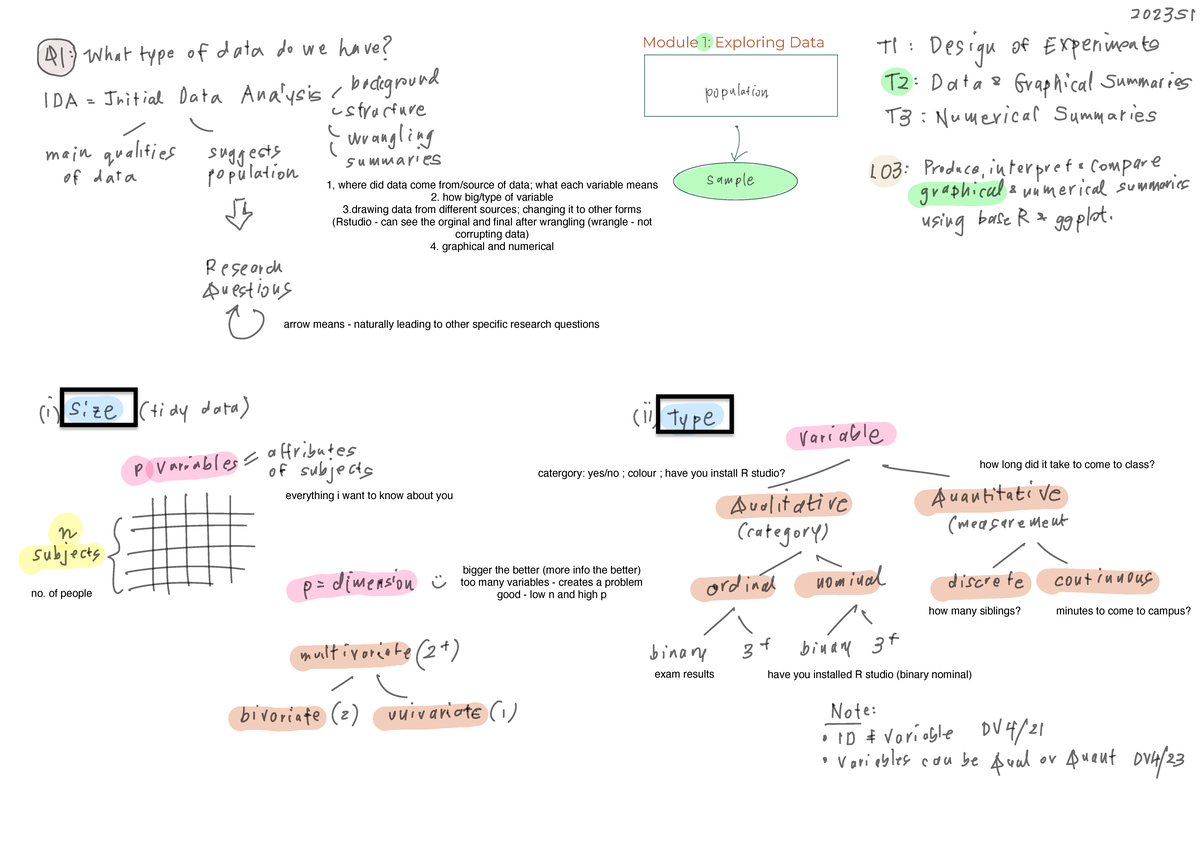 2023S1
Q1: What type of data do we have?
IDA = Initial Data Analysis
background
structure
wrangling
summaries
main qualities
of data
suggests
population
1, where did data come from/source of data; what each variable means
2. how big/type of variable
3.drawing data from different sources; changing it to other forms
(Rstudio - can see the orginal and final after wrangling (wrangle - not
corrupting data)
4. graphical and numerical
Research
Questions
arrow means - naturally leading to other specific research questions
Module 1: Exploring Data
population
sample
T1: Design of Experiments
T2: Data & Graphical Summaries
T3: Numerical Summaries
LO3: Produce, interpret & compare
graphical & numerical summaries
using base R & ggplot.
(i) size (tidy data)
p variables = attributes
of subjects
everything i want to know about you
n
subjects
no. of people
p = dimension
bigger the better (more info the better)
too many variables - creates a problem
good - low n and high p
multivariate (2+)
bivariate (2) univariate (1)
(ii) type
variable
catergory: yes/no ; colour ; have you install R studio?
how long did it take to come to class?
Qualitative
(category)
Quantitative
(measurement
ordinal nominal
discrete continuous
how many siblings? minutes to come to campus?
binary 3+ binary 3+
exam results have you installed R studio (binary nominal)
Note:
• ID ≠ Variable DV4/21
• Variables can be Qual or Quant DV4/23